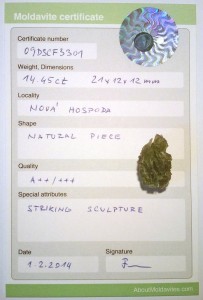 Moldavite certificate
Certificate number
09DSCF5301
Weight, Dimensions
14.45ct 21x12x12mm
Locality
NOVÁ HOSPODA
Shape
NATURAL PIECE
Quality
A++/+++
Special attributes
STRIKING SCULPTURE
Date
Signature
1.2.2014
AboutMoldavites.com